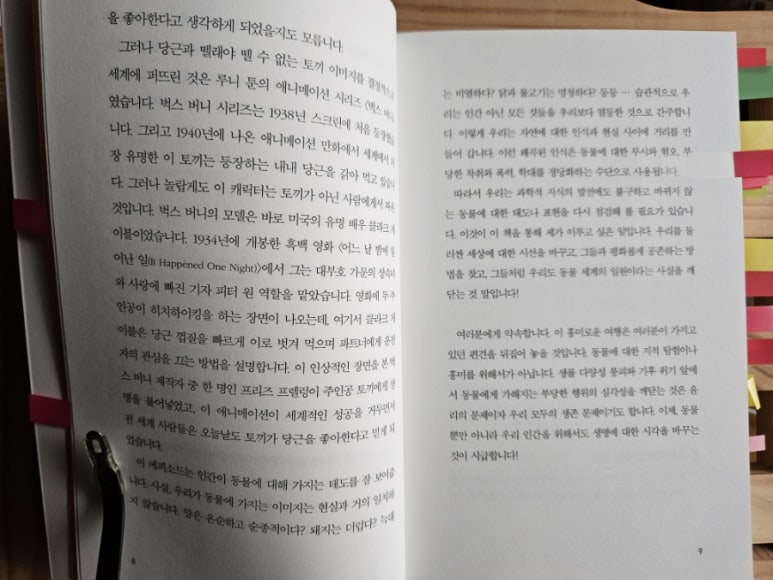 을 좋아한다고 생각하게 되었을지도 모릅니다.
그러나 당근과 뗄래야 뗄 수 없는 토끼 이미지를 결정적으로
세계에 퍼뜨린 것은 루니 툰의 애니메이션 시리즈 〈벅스 버니〉
였습니다. 벅스 버니 시리즈는 1938년 스크린에 처음 등장했습
니다. 그리고 1940년에 나온 애니메이션 만화에서 세계에서 가
장 유명한 이 토끼는 등장하는 내내 당근을 갉아 먹고 있습니
다. 그러나 놀랍게도 이 캐릭터는 토끼가 아닌 사람에게서 따온
것입니다. 벅스 버니의 모델은 바로 미국의 유명 배우 클라크 게
이블이었습니다. 1934년에 개봉한 흑백 영화 〈어느 날 밤에 일
어난 일(It Happened One Night)〉에서 그는 대부호 가문의 상속녀
와 사랑에 빠진 기자 피터 원 역할을 맡았습니다. 영화에 두 주
인공이 히치하이킹을 하는 장면이 나오는데, 여기서 클라크 게
이블은 당근 껍질을 빠르게 이로 벗겨 먹으며 파트너에게 운전
자의 관심을 끄는 방법을 설명합니다. 이 인상적인 장면을 본 벅
스 버니 제작자 중 한 명인 프리즈 프렐렁이 주인공 토끼에게 생
명을 불어넣었고, 이 애니메이션이 세계적인 성공을 거두면서
전 세계 사람들은 오늘날도 토끼가 당근을 좋아한다고 믿게 되
었습니다.
이 에피소드는 인간이 동물에 대해 가지는 태도를 잘 보여줍
니다. 사실, 우리가 동물에 가지는 이미지는 현실과 거의 일치하
지 않습니다. 양은 온순하고 순종적이다? 돼지는 더럽다? 늑대
8
는 비열하다? 닭과 물고기는 멍청하다? 등등 … 습관적으로 우
리는 인간 아닌 모든 것들을 우리보다 열등한 것으로 간주합니
다. 이렇게 우리는 자연에 대한 인식과 현실 사이에 거리를 만
들어 갑니다. 이런 왜곡된 인식은 동물에 대한 무시와 혐오, 부
당한 착취와 폭력, 학대를 정당화하는 수단으로 사용됩니다.
따라서 우리는 과학적 지식의 발전에도 불구하고 바뀌지 않
는 동물에 대한 태도나 표현을 다시 점검해 볼 필요가 있습니
다. 이것이 이 책을 통해 제가 이루고 싶은 일입니다. 우리를 둘
러싼 세상에 대한 시선을 바꾸고, 그들과 평화롭게 공존하는 방
법을 찾고, 그들처럼 우리도 동물 세계의 일원이라는 사실을 깨
닫는 것 말입니다!
여러분에게 약속합니다. 이 흥미로운 여행은 여러분이 가지고
있던 편견을 뒤집어 놓을 것입니다. 동물에 대한 지적 탐험이나
흥미를 위해서가 아닙니다. 생물 다양성 붕괴와 기후 위기 앞에
서 동물에게 가해지는 부당한 행위의 심각성을 깨닫는 것은 윤
리의 문제이자 우리 모두의 생존 문제이기도 합니다. 이제, 동물
뿐만 아니라 우리 인간을 위해서도 생명에 대한 시각을 바꾸는
것이 시급합니다!
9